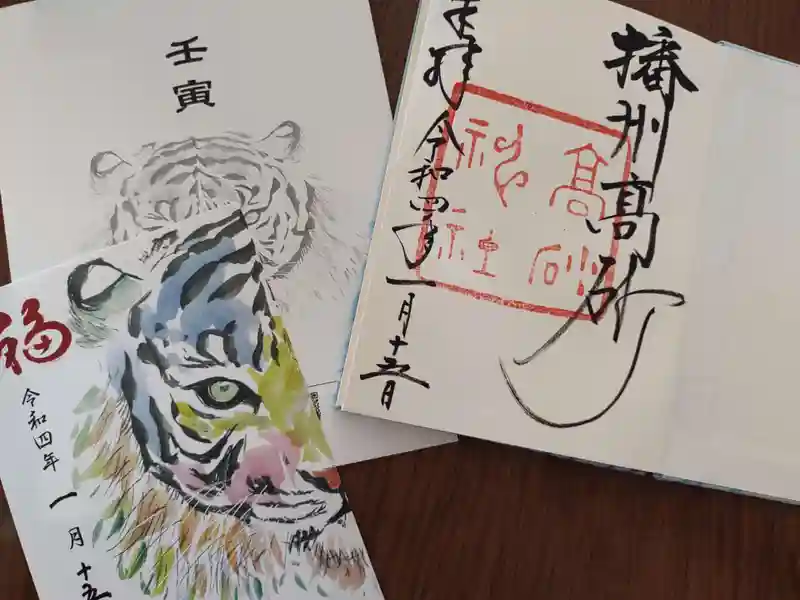 壬寅
福
令和四年
一月十五
奉拝
令和四年一月十五日
播州高砂
高砂
神社